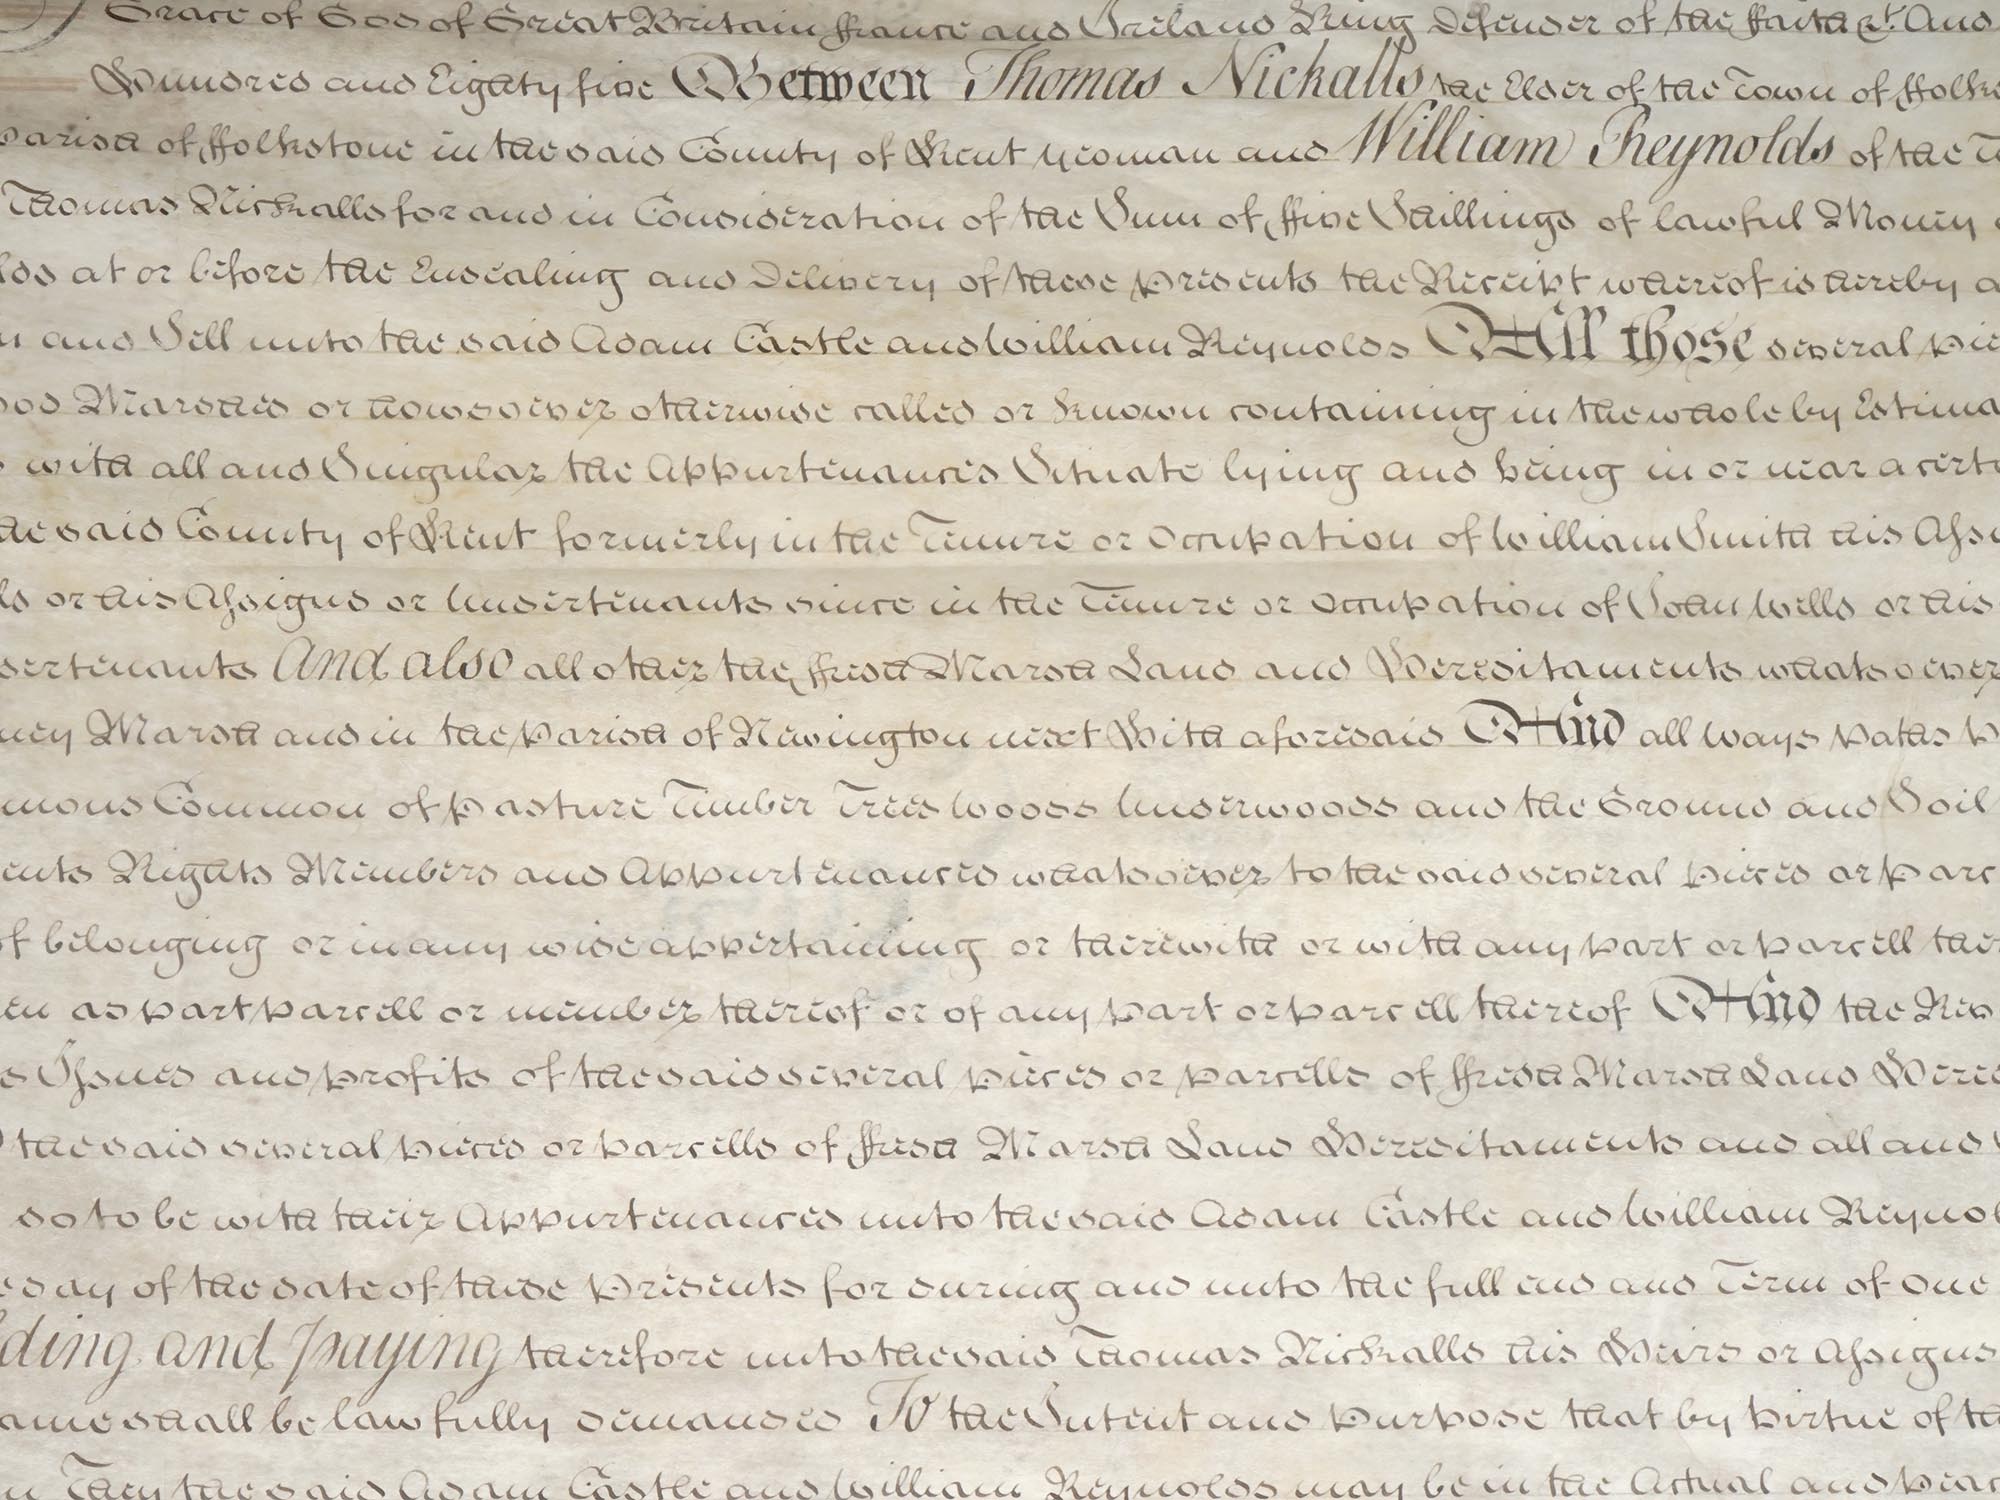 Grace of God of Great Britain ffrance and Ireland King Defender of the ffaith &c. And
Hundred and Eighty five Between Thomas Nickalls the Elder of the Town of ffolks
parish of ffolkstone in the said County of Kent yeoman and William Reynolds of the T
Thomas Nickalls for and in Consideration of the Sum of ffive Shillings of lawful Money
lds at or before the Ensealing and Delivery of these presents the Receipt whereof is hereby a
and Sell unto the said Adam Castle and William Reynolds All those several pie
Marshes or howsoever otherwise called or known containing in the whole by Estima
with all and Singular the Appurtenances Situate lying and being in or near a certa
he said County of Kent formerly in the Tenure or Occupation of William Smith his Assi
ls or his Assigns or Undertenants since in the Tenure or Occupation of John Wells or his
dertenants And also all other the ffresh Marsh Land and Hereditaments whatsoever
ney Marsh and in the parish of Newington next Hith aforesaid And all ways paths p
mons Common of pasture Timber Trees Woods Underwoods and the Ground and Soil
ents Rights Members and Appurtenances whatsoever to the said several pieces or parc
of belonging or in any wise appertaining or therewith or with any part or parcell ther
en as part parcell or member thereof or of any part or parcell thereof And the Rev
s Issues and profits of the said several pieces or parcells of ffresh Marsh Land Hered
the said several pieces or parcells of ffresh Marsh Land Hereditaments and all and
so to be with their Appurtenances unto the said Adam Castle and William Reynol
e day of the date of these presents for during and unto the full end and Term of one
ding and paying therefore unto the said Thomas Nickalls his Heirs or Assigns
ame shall be lawfully demanded To the Intent and purpose that by virtue of th
They the said Adam Castle and William Reynolds may be in the Actual and peac